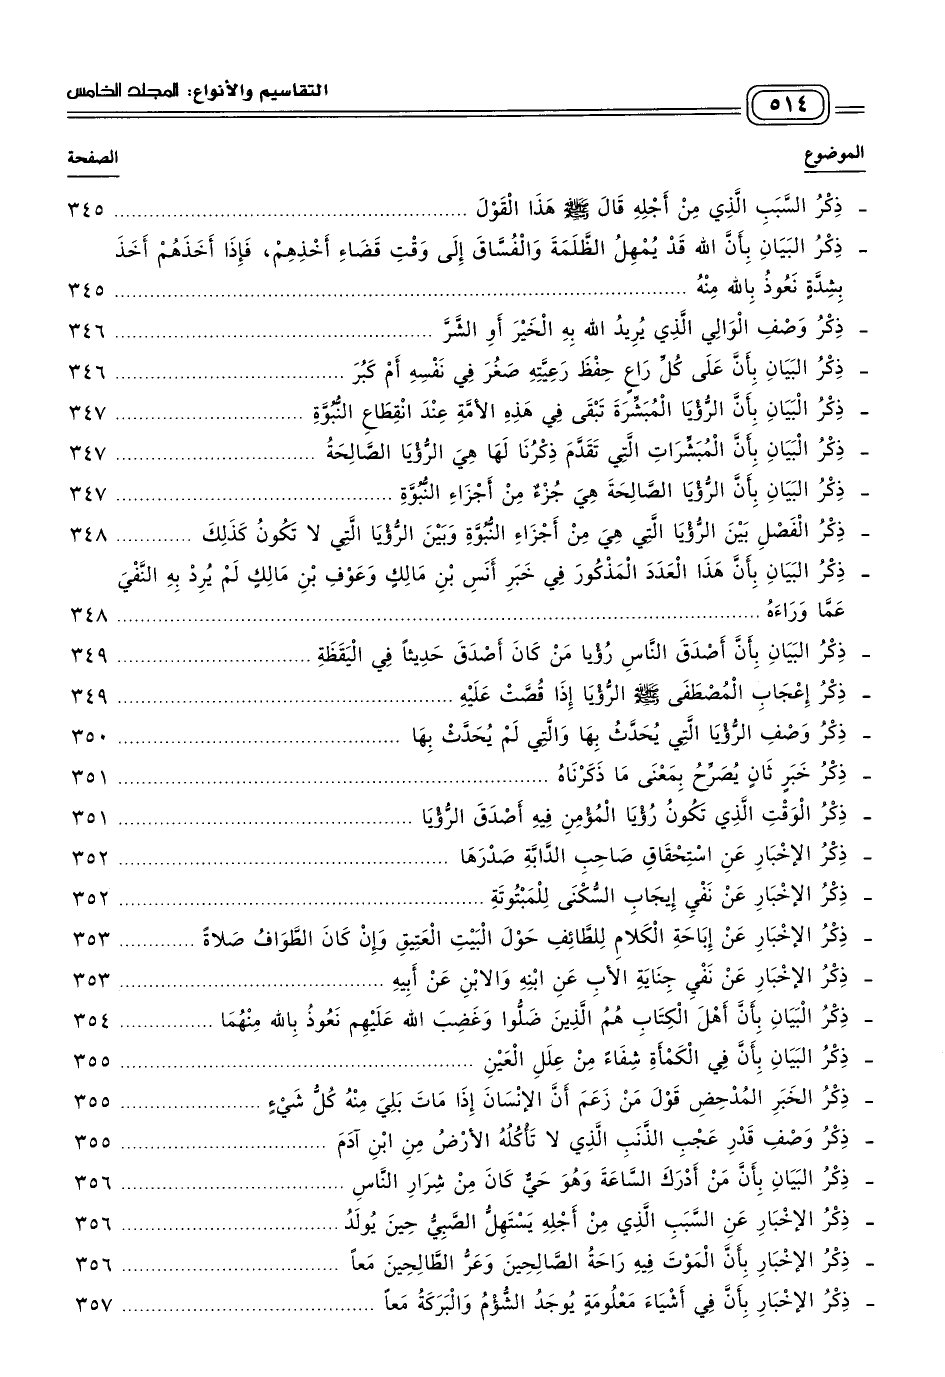 ٥١٤ التقاسيم والأنواع: المجلد الخامس
الموضوع الصفحة
- ذِكْرُ السَّبَبِ الَّذِي مِنْ أَجْلِهِ قَالَ ﷺ هَذَا الْقَوْلَ ................ ٣٤٥
- ذِكْرُ البَيَانِ بِأَنَّ الله قَدْ يُمْهِلُ الظَّلَمَةَ وَالْفُسَّاقَ إِلَى وَقْتِ قَضَاءِ أَخْذِهِمْ، فَإِذَا أَخَذَهُمْ أَخَذَ
بِشِدَّةٍ نَعُوذُ بِالله مِنْهُ ................ ٣٤٥
- ذِكْرُ وَصْفِ الْوَالِي الَّذِي يُرِيدُ الله بِهِ الْخَيْرَ أَوِ الشَّرَّ ................ ٣٤٦
- ذِكْرُ البَيَانِ بِأَنَّ عَلَى كُلِّ رَاعٍ حِفْظَ رَعِيَّتِهِ صَغُرَ فِي نَفْسِهِ أَمْ كَبُرَ ................ ٣٤٦
- ذِكْرُ الْبَيَانِ بِأَنَّ الرُّؤْيَا الْمُبَشِّرَةَ تَبْقَى فِي هَذِهِ الأُمَّةِ عِنْدَ انْقِطَاعِ النُّبُوَّةِ ................ ٣٤٧
- ذِكْرُ الْبَيَانِ بِأَنَّ الْمُبَشِّرَاتِ الَّتِي تَقَدَّمَ ذِكْرُنَا لَهَا هِيَ الرُّؤْيَا الصَّالِحَةُ ................ ٣٤٧
- ذِكْرُ البَيَانِ بِأَنَّ الرُّؤْيَا الصَّالِحَةَ هِيَ جُزْءٌ مِنْ أَجْزَاءِ النُّبُوَّةِ ................ ٣٤٧
- ذِكْرُ الْفَصْلِ بَيْنَ الرُّؤْيَا الَّتِي هِيَ مِنْ أَجْزَاءِ النُّبُوَّةِ وَبَيْنَ الرُّؤْيَا الَّتِي لا تَكُونُ كَذَلِكَ ............ ٣٤٨
- ذِكْرُ البَيَانِ بِأَنَّ هَذَا الْعَدَدَ الْمَذْكُورَ فِي خَبَرِ أَنَسِ بْنِ مَالِكٍ وَعَوْفِ بْنِ مَالِكٍ لَمْ يُرِدْ بِهِ النَّفْيَ
عَمَّا وَرَاءَهُ ................ ٣٤٨
- ذِكْرُ البَيَانِ بِأَنَّ أَصْدَقَ النَّاسِ رُؤْيا مَنْ كَانَ أَصْدَقَ حَدِيثاً فِي الْيَقَظَةِ ................ ٣٤٩
- ذِكْرُ إِعْجَابِ الْمُصْطَفَى ﷺ الرُّؤْيَا إِذَا قُصَّتْ عَلَيْهِ ................ ٣٤٩
- ذِكْرُ وَصْفِ الرُّؤْيَا الَّتِي يُحَدَّثُ بِهَا وَالَّتِي لَمْ يُحَدَّثْ بِهَا ................ ٣٥٠
- ذِكْرُ خَبَرٍ ثَانٍ يُصَرِّحُ بِمَعْنَى مَا ذَكَرْنَاهُ ................ ٣٥١
- ذِكْرُ الْوَقْتِ الَّذِي تَكُونُ رُؤْيَا الْمُؤْمِنِ فِيهِ أَصْدَقَ الرُّؤْيَا ................ ٣٥١
- ذِكْرُ الإخْبَارِ عَنِ اسْتِحْقَاقِ صَاحِبِ الدَّابَّةِ صَدْرَهَا ................ ٣٥٢
- ذِكْرُ الإخْبَارِ عَنْ نَفْيِ إِيجَابِ السُّكْنَى لِلْمَبْتُوتَةِ ................ ٣٥٢
- ذِكْرُ الإخْبَارِ عَنْ إِبَاحَةِ الْكَلامِ لِلطَّائِفِ حَوْلَ الْبَيْتِ الْعَتِيقِ وَإِنْ كَانَ الطَّوَافُ صَلاةً ............ ٣٥٣
- ذِكْرُ الإخْبَارِ عَنْ نَفْيِ جِنَايَةِ الأبِ عَنِ ابْنِهِ وَالابْنِ عَنْ أَبِيهِ ................ ٣٥٣
- ذِكْرُ الْبَيَانِ بِأَنَّ أَهْلَ الْكِتَابِ هُمُ الَّذِينَ ضَلُّوا وَغَضِبَ الله عَلَيْهِم نَعُوذُ بِالله مِنْهُمَا ............ ٣٥٤
- ذِكْرُ البَيَانِ بِأَنَّ فِي الْكَمْأَةِ شِفَاءً مِنْ عِلَلِ الْعَيْنِ ................ ٣٥٥
- ذِكْرُ الخَبَرِ المُدْحِضِ قَوْلَ مَنْ زَعَمَ أَنَّ الإنْسَانَ إِذَا مَاتَ بَلِيَ مِنْهُ كُلُّ شَيْءٍ ................ ٣٥٥
- ذِكْرُ وَصْفِ قَدْرِ عَجْبِ الذَّنَبِ الَّذِي لا تَأْكُلُهُ الأرْضُ مِنِ ابْنِ آدَمَ ................ ٣٥٥
- ذِكْرُ الْبَيَانِ بِأَنَّ مَنْ أَدْرَكَ السَّاعَةَ وَهُوَ حَيٌّ كَانَ مِنْ شِرَارِ النَّاسِ ................ ٣٥٦
- ذِكْرُ الإخْبَارِ عَنِ السَّبَبِ الَّذِي مِنْ أَجْلِهِ يَسْتَهِلُّ الصَّبِيُّ حِينَ يُولَدُ ................ ٣٥٦
- ذِكْرُ الإخْبَارِ بِأَنَّ الْمَوْتَ فِيهِ رَاحَةُ الصَّالِحِينَ وَعَرُّ الطَّالِحِينَ مَعاً ................ ٣٥٦
- ذِكْرُ الإخْبَارِ بِأَنَّ فِي أَشْيَاءَ مَعْلُومَةٍ يُوجَدُ الشُّؤْمُ وَالْبَرَكَةُ مَعاً ................ ٣٥٧